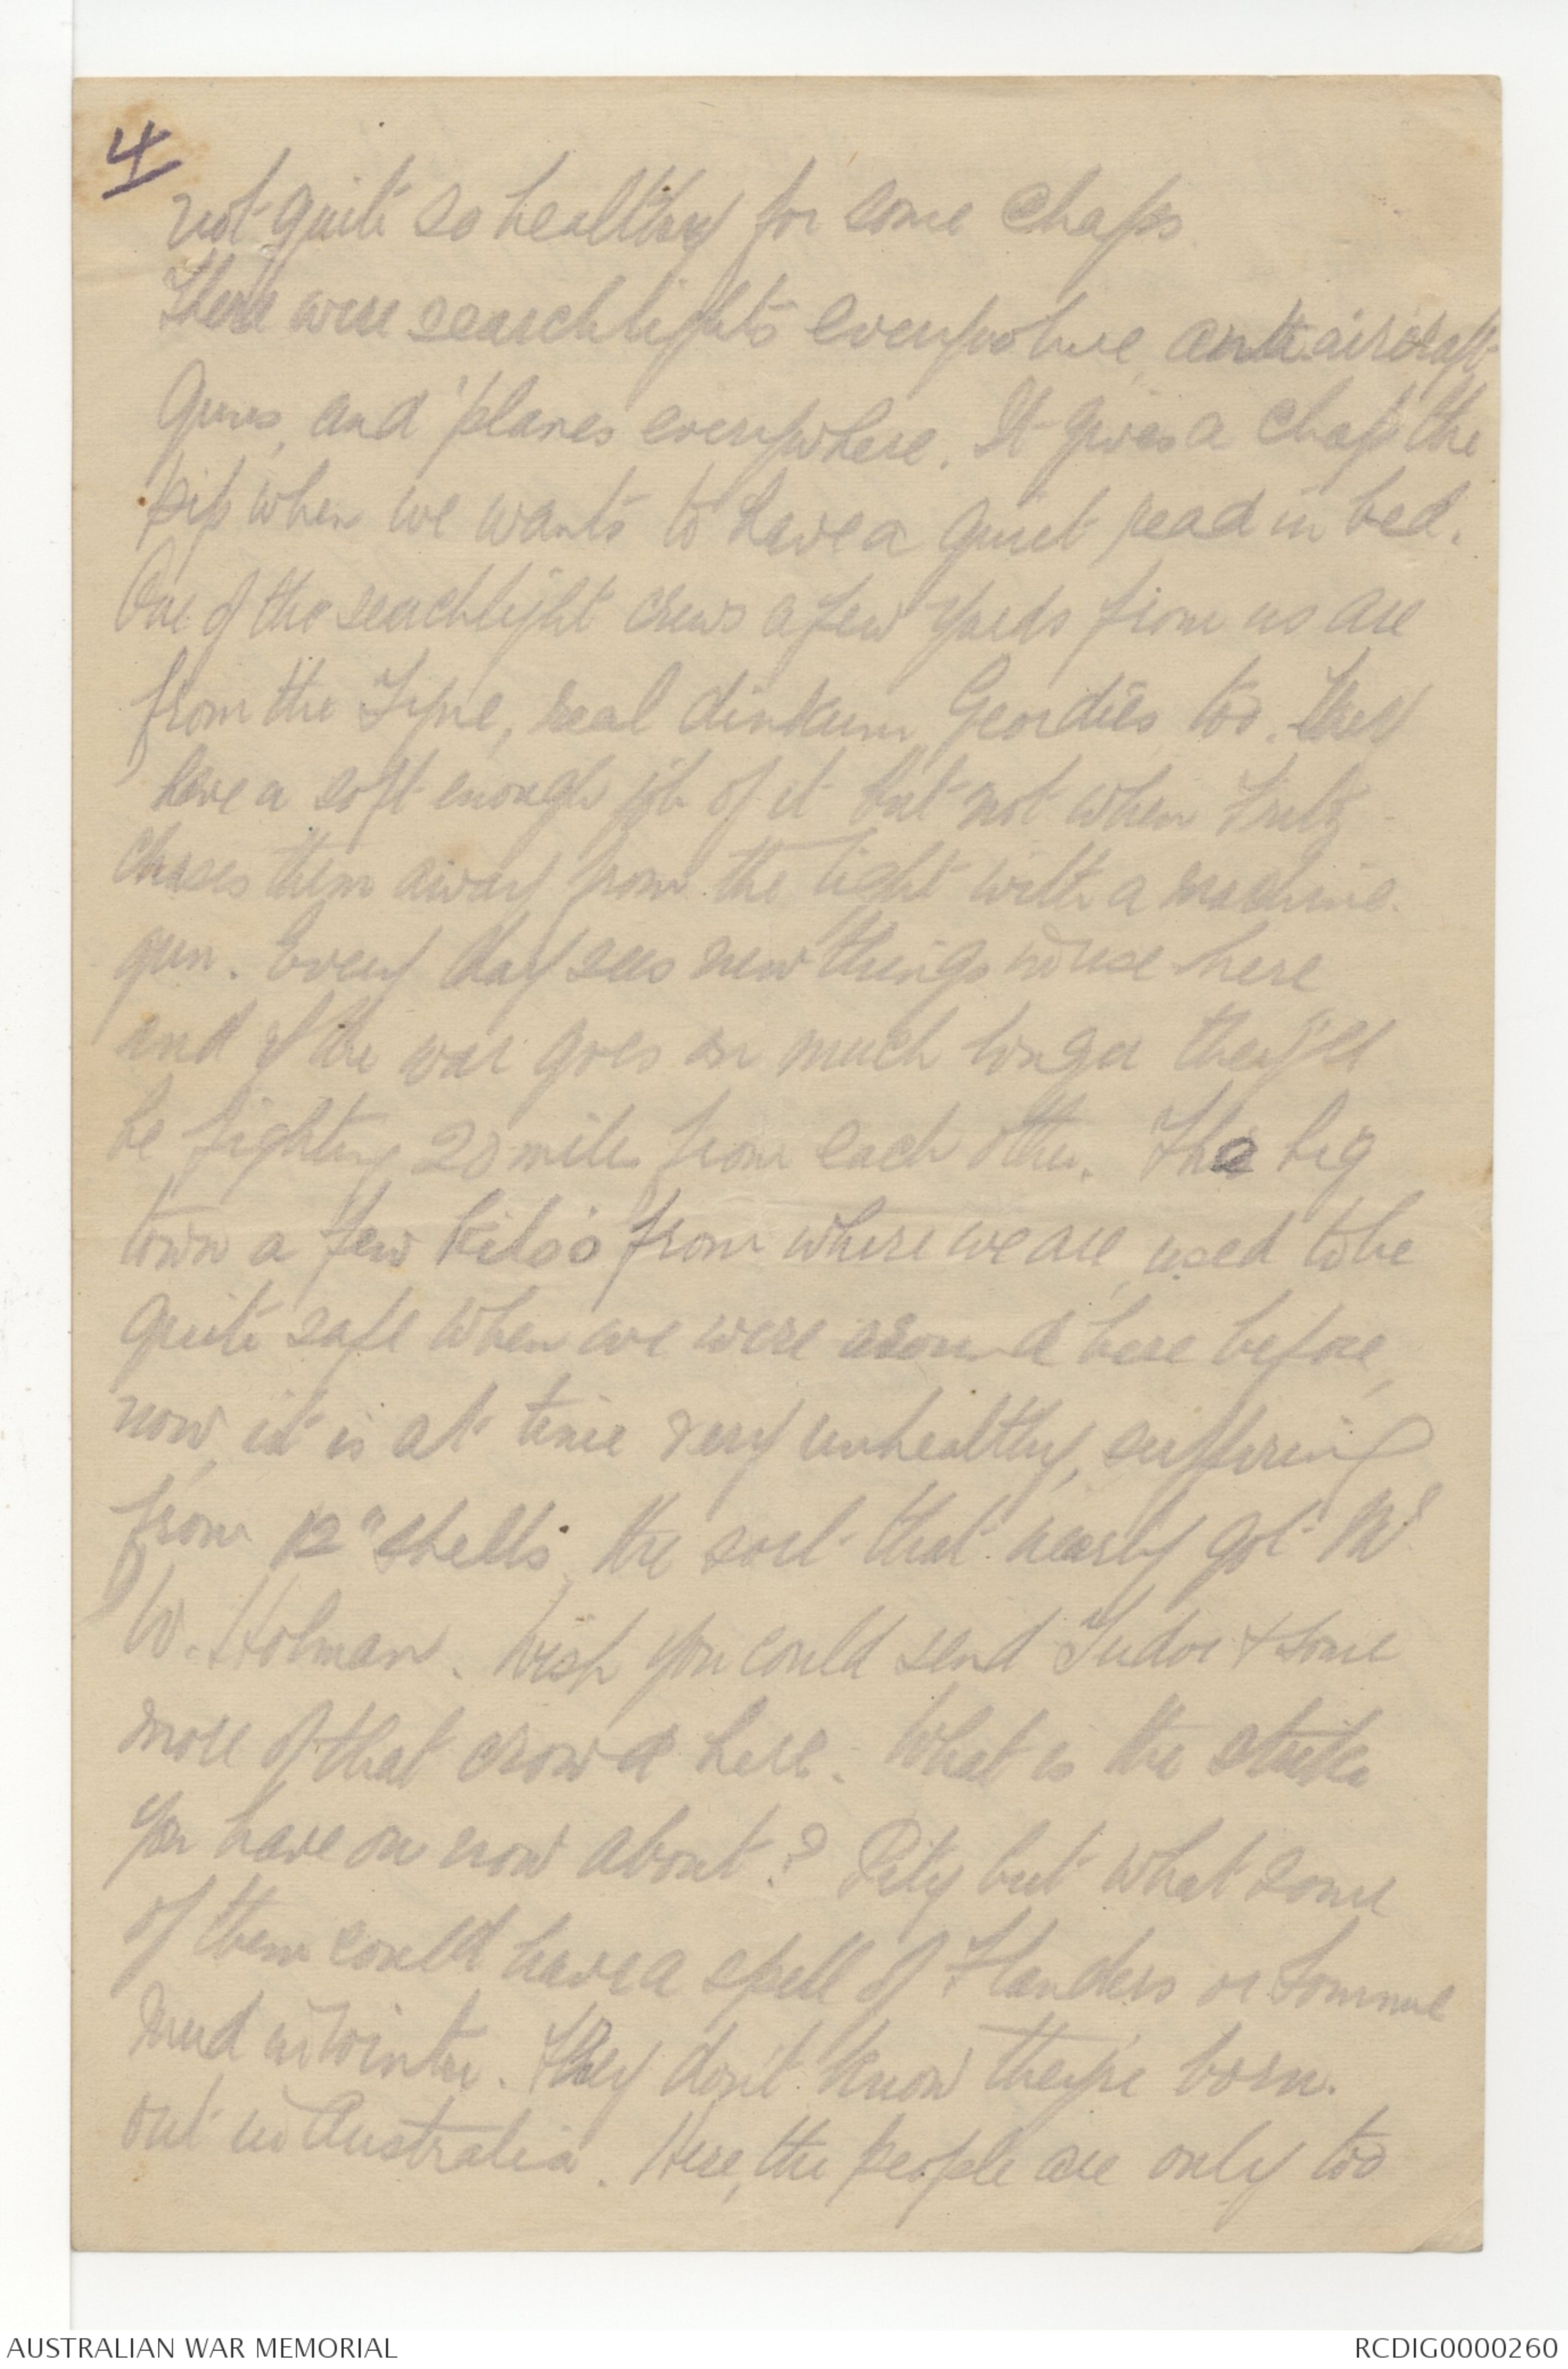 4
not quite so healthy for some chaps
There were searchlights everywhere, anti aircraft
guns, and 'planes everywhere. It gives a chap the
pip when we wants to have a quiet read in bed.
One of the seachlight crews a few yards from us are
from the Tyne, real dinkum Geordies, too. They
have a soft enough job of it but not when Fritz
chases them away from the light with a machine
gun. Every day sees new things in use here
and if the war goes on much longer they'll
be fighting 20 miles from each other. The big
town a few kilo's from where we are, used to be
quite safe when we were around here before,
now, it is at time very unhealthy, suffering
from 12" shells, the sort that nearly got Mr
W. Holman. Wish you could send Tudor & some
more of that crowd here. What is the strike
you have on now about? Pity but what some
of them could have a spell of Flanders or Somme
mud in winter. They don't know they're born.
out in Australia. Here, the people are only too
AUSTRALIAN WAR MEMORIAL
RCDIG0000260